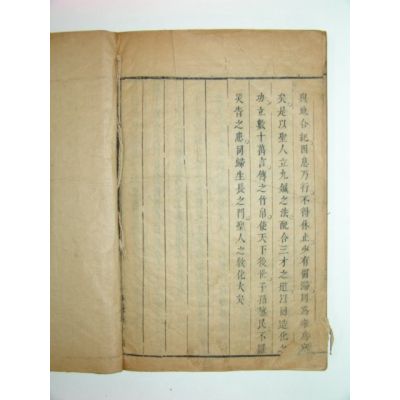 與地合紀因息乃行不得休止少有留滯則爲
矣是以聖人立九鍼之法配合三才之道以回造化之
功立數十萬言傳之竹帛使天下後世子孫黎民不罹
災眚之患同歸生長之門聖人之敎化大矣